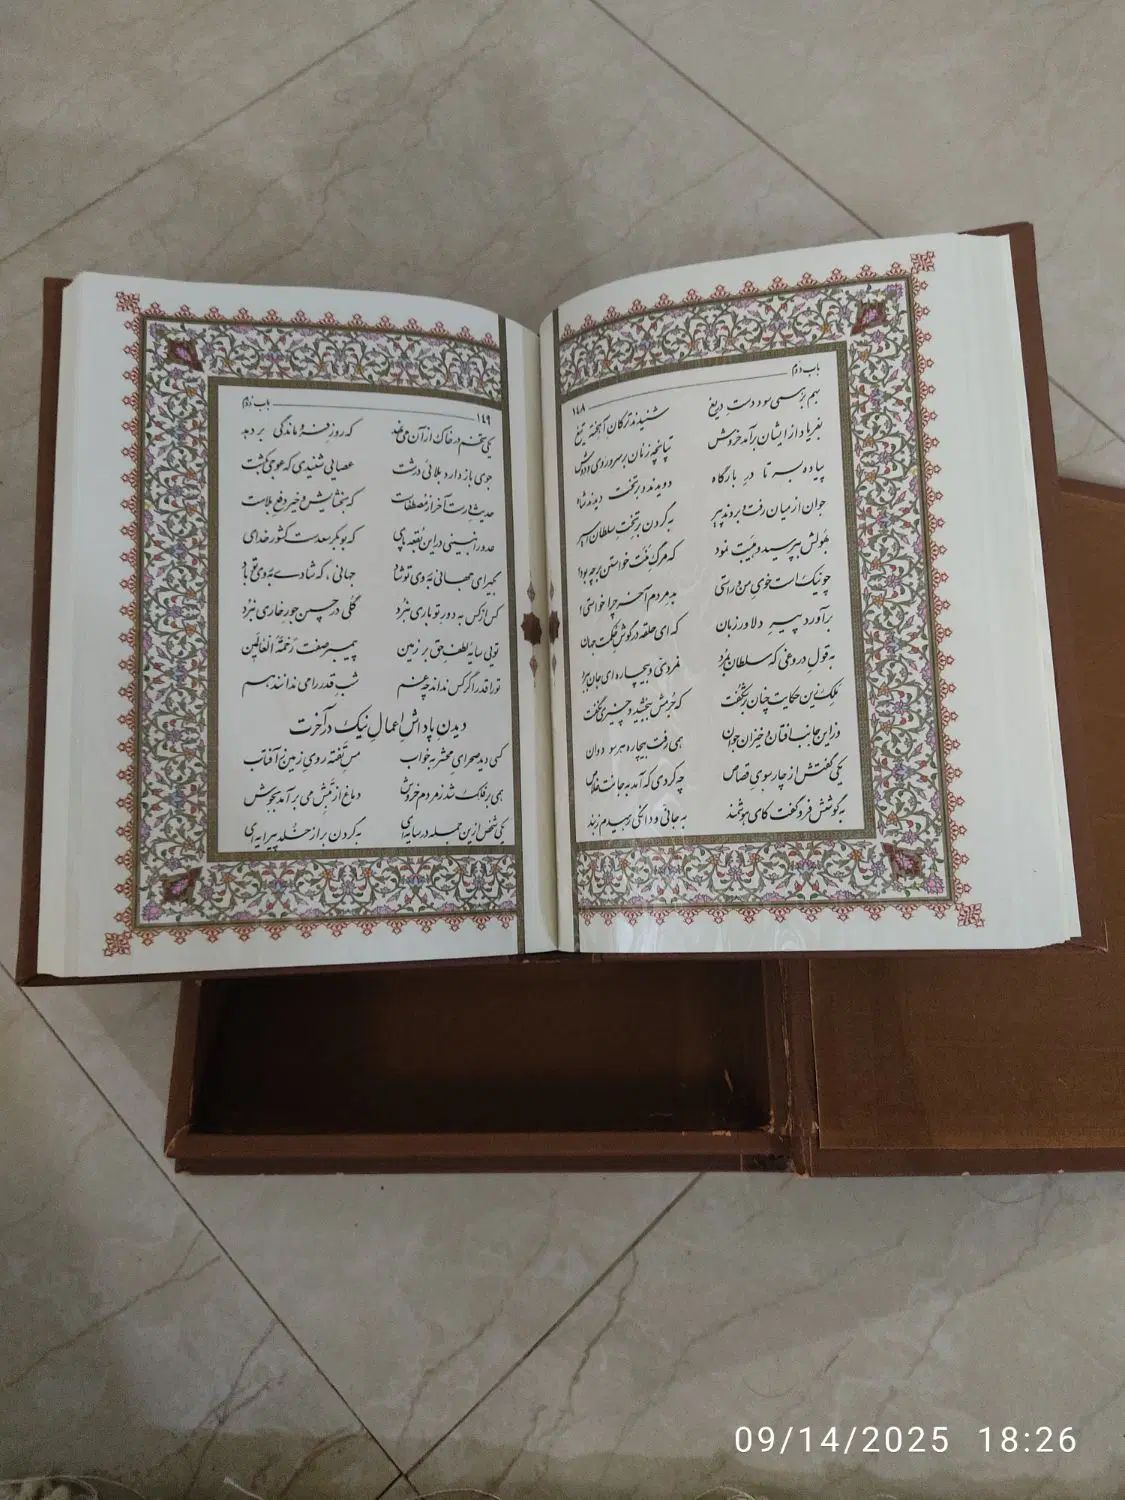 باب دوم ۱۴۸
بهم بر همی سود دست دریغ شنیدند ترکان آهخته تیغ
بفریاد از ایشان برآمد خروش تپانچه زنان بر سر و روی و دوش
پیاده بسر تا درِ بارگاه دویدند و بر تخت دیدند شاه
جوان از میان رفت و بردند پیر به گردن بر تخت سلطان اسیر
بهولش بپرسید و هیبت نمود که مرگ منت خواستن بر چه بود؟
چو نیک است خوی من و راستی بد مردم آخر چرا خواستی؟
برآورد پیرِ دلاور زبان که ای حلقه در گوش حکمت جهان
به قول دروغی که سلطان بمرد نمردی و بیچاره‌ای جان ببرد
ملک زین حکایت چنان بر شگفت که جرمش ببخشید و چیزی نگفت
وزاین جانب افتان و خیزان جوان همی رفت بیچاره هر سو دوان
یکی گفتش از چارسوی قصاص چه کردی که آمد به جانت خلاص
به گوشش فرو گفت کای هوشمند به جانی و دانگی رهیدم ز بند
۱۴۹ باب دوم
یکی تخم در خاک از آن می‌نهد که روز فرو ماندگی بر دهد
جوی باز دارد بلائی درشت عصایی شنیدی که عوجی بکشت
حدیث درست آخر از مصطفاست که بخشایش و خیر دفع بلاست
عدو را نبینی در این بُقعه پای که بوبکر سعدست کشور خدای
بگیر ای جهانی به روی تو شاد جهانی، که شادی به روی تو باد
کس از کس به دور تو باری نبرد گلی در چمن جور خاری نبرد
تویی سایهٔ لطفِ حق بر زمین پیمبر صفت رَحْمَةُ العالَمین
تو را قدر اگر کس نداند چه غم شبِ قدر را می ندانند هم
دیدن پاداشِ اعمالِ نیک در آخرت
کسی دید صحرای محشر به خواب مسِ تفته روی زمین ز آفتاب
همی بر فلک شد ز مردم خروش دماغ از تبش می برآمد بجوش
یکی شخص ازین جمله در سایه‌ای به گردن بر از خُلد پیرایه‌ای
09/14/2025 18:26